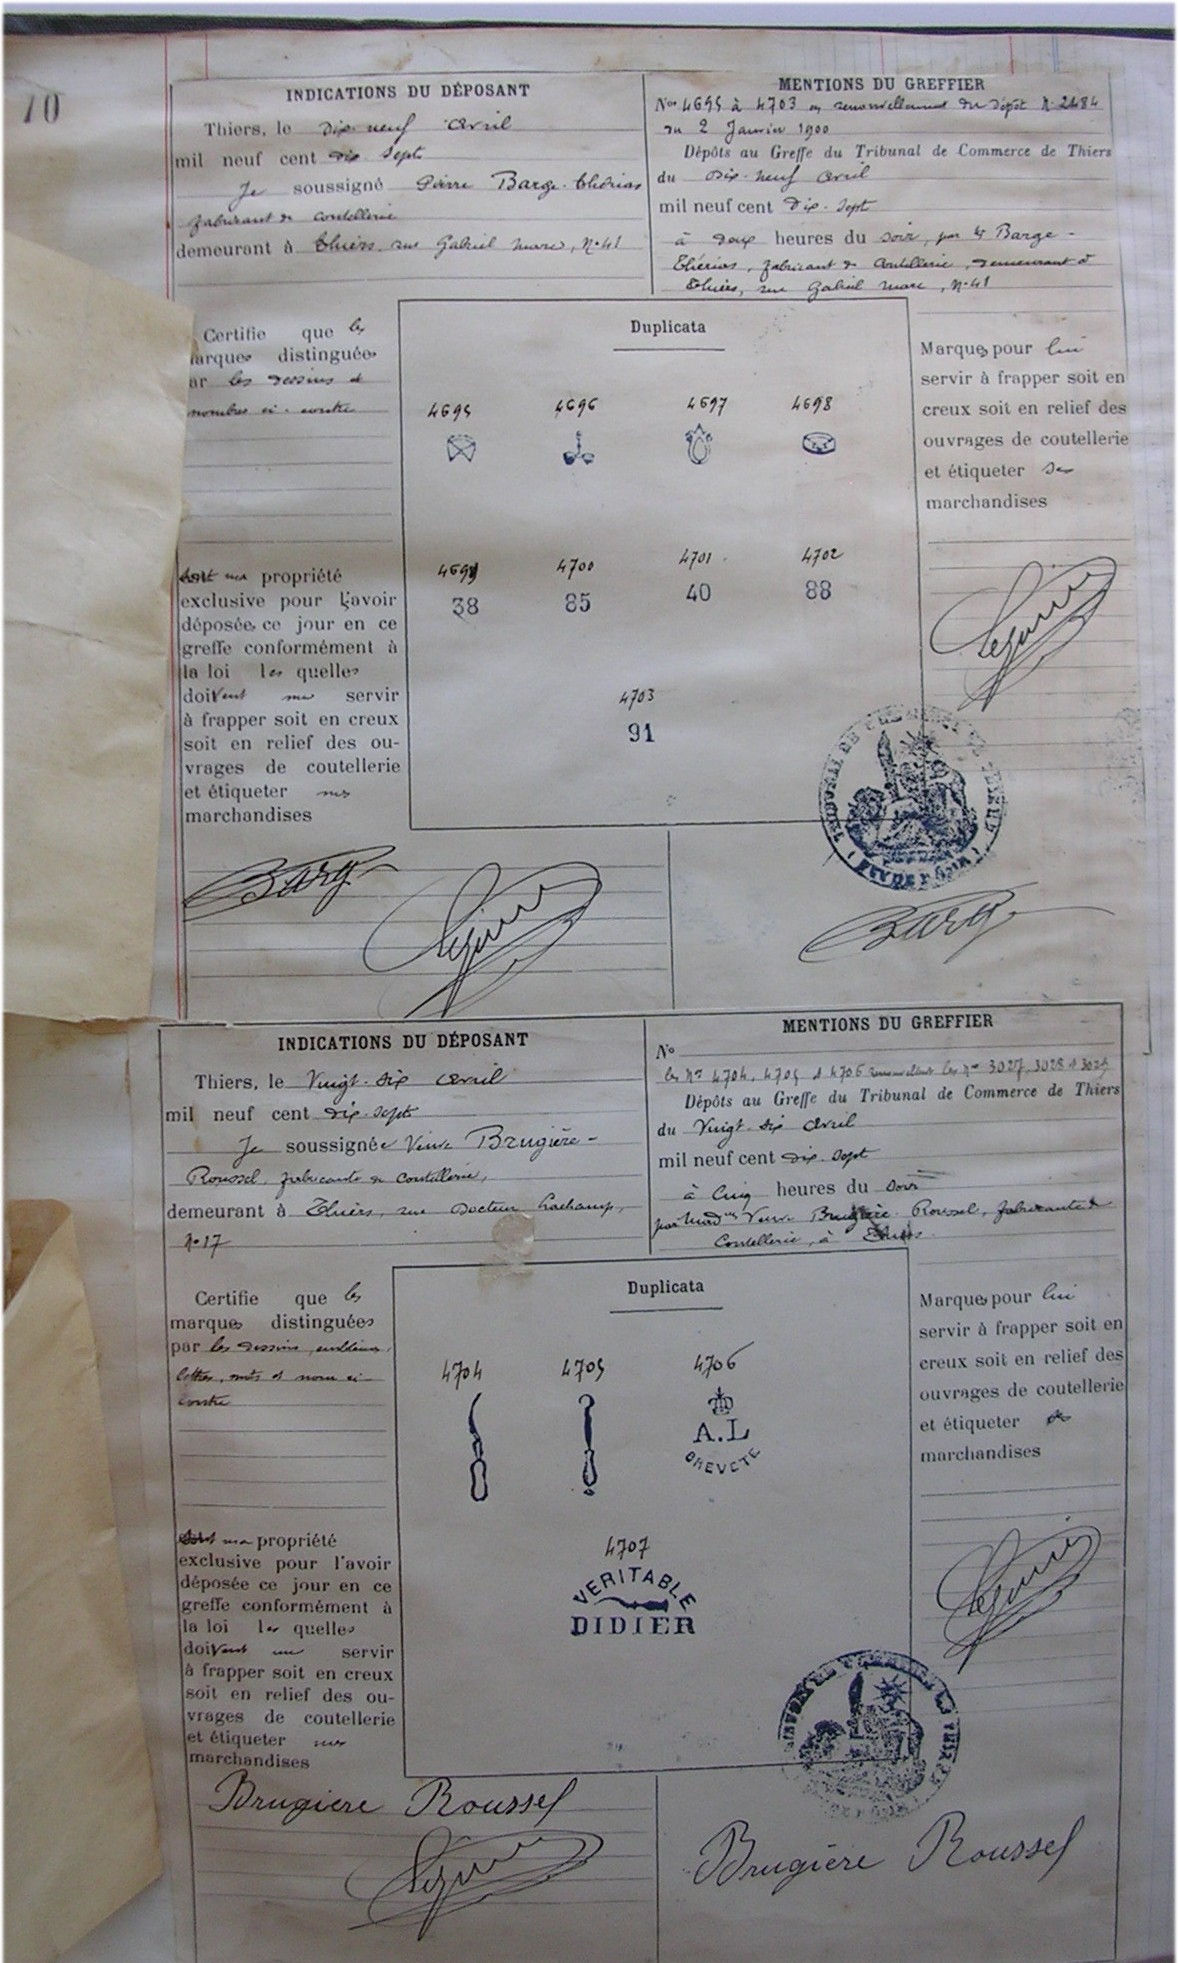 70
INDICATIONS DU DÉPOSANT
Thiers, le Dix-neuf Avril
mil neuf cent dix-sept
Je soussigné Pierre Barge-Thérias
fabricant de coutellerie
demeurant à Thiers, rue Gabriel Marc, N°41
MENTIONS DU GREFFIER
Nos 4695 à 4703 en renouvellement du dépôt N. 2484
du 2 Janvier 1900
Dépôts au Greffe du Tribunal de Commerce de Thiers
du Dix-neuf Avril
mil neuf cent Dix-sept
à deux heures du soir, par Mr Barge-
Thérias, fabricant de coutellerie, demeurant à
Thiers, rue Gabriel Marc, N°41
Certifie que les
marques distinguées
par les dessins et
nombres ci-contre
Duplicata
4695 4696 4697 4698
4699 4700 4701 4702
38 85 40 88
4703
91
Marques pour lui
servir à frapper soit en
creux soit en relief des
ouvrages de coutellerie
et étiqueter ses
marchandises
sont ma propriété
exclusive pour l'avoir
déposée ce jour en ce
greffe conformément à
la loi les quelles
doivent me servir
à frapper soit en creux
soit en relief des ou-
vrages de coutellerie
et étiqueter mes
marchandises
Barge
Barge
INDICATIONS DU DÉPOSANT
Thiers, le Vingt-six Avril
mil neuf cent dix-sept
Je soussignée Veuve Brugière-
Roussel, fabricante de coutellerie,
demeurant à Thiers, rue Docteur Lachamp,
N°17
MENTIONS DU GREFFIER
No
les Nos 4704, 4705 et 4706 renouvellent les Nos 3027, 3028 et
Dépôts au Greffe du Tribunal de Commerce de Thiers
du Vingt-six Avril
mil neuf cent dix-sept
à Cinq heures du soir
par Mad me Veuve Brugière-Roussel, fabricante de
Coutellerie, à Thiers
Certifie que les
marques distinguées
par les dessins, emblèmes,
lettres, mots et nom ci-
contre
Duplicata
4704 4705 4706
A.L
BREVETÉ
4707
VERITABLE
DIDIER
Marques pour lui
servir à frapper soit en
creux soit en relief des
ouvrages de coutellerie
et étiqueter
marchandises
sont ma propriété
exclusive pour l'avoir
déposée ce jour en ce
greffe conformément à
la loi les quelles
doivent me servir
à frapper soit en creux
soit en relief des ou-
vrages de coutellerie
et étiqueter mes
marchandises
Brugière Roussel
Brugière Roussel